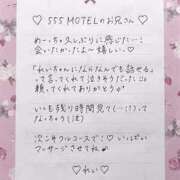 ♡ 555 MOTELのお兄さん ♡
めーっちゃ久しぶりに感じたー！
会いたかったよ〜嬉しい♡
「れいちゃんになんでも話せる」
って言ってくれて泣きそうだった
頼ってくれてありがとう
いつも残り時間見て(…!?)って
なっちゃう(泣)
次こそフルコースで！♡いっぱい
マッサージさせてね
♡れい♡